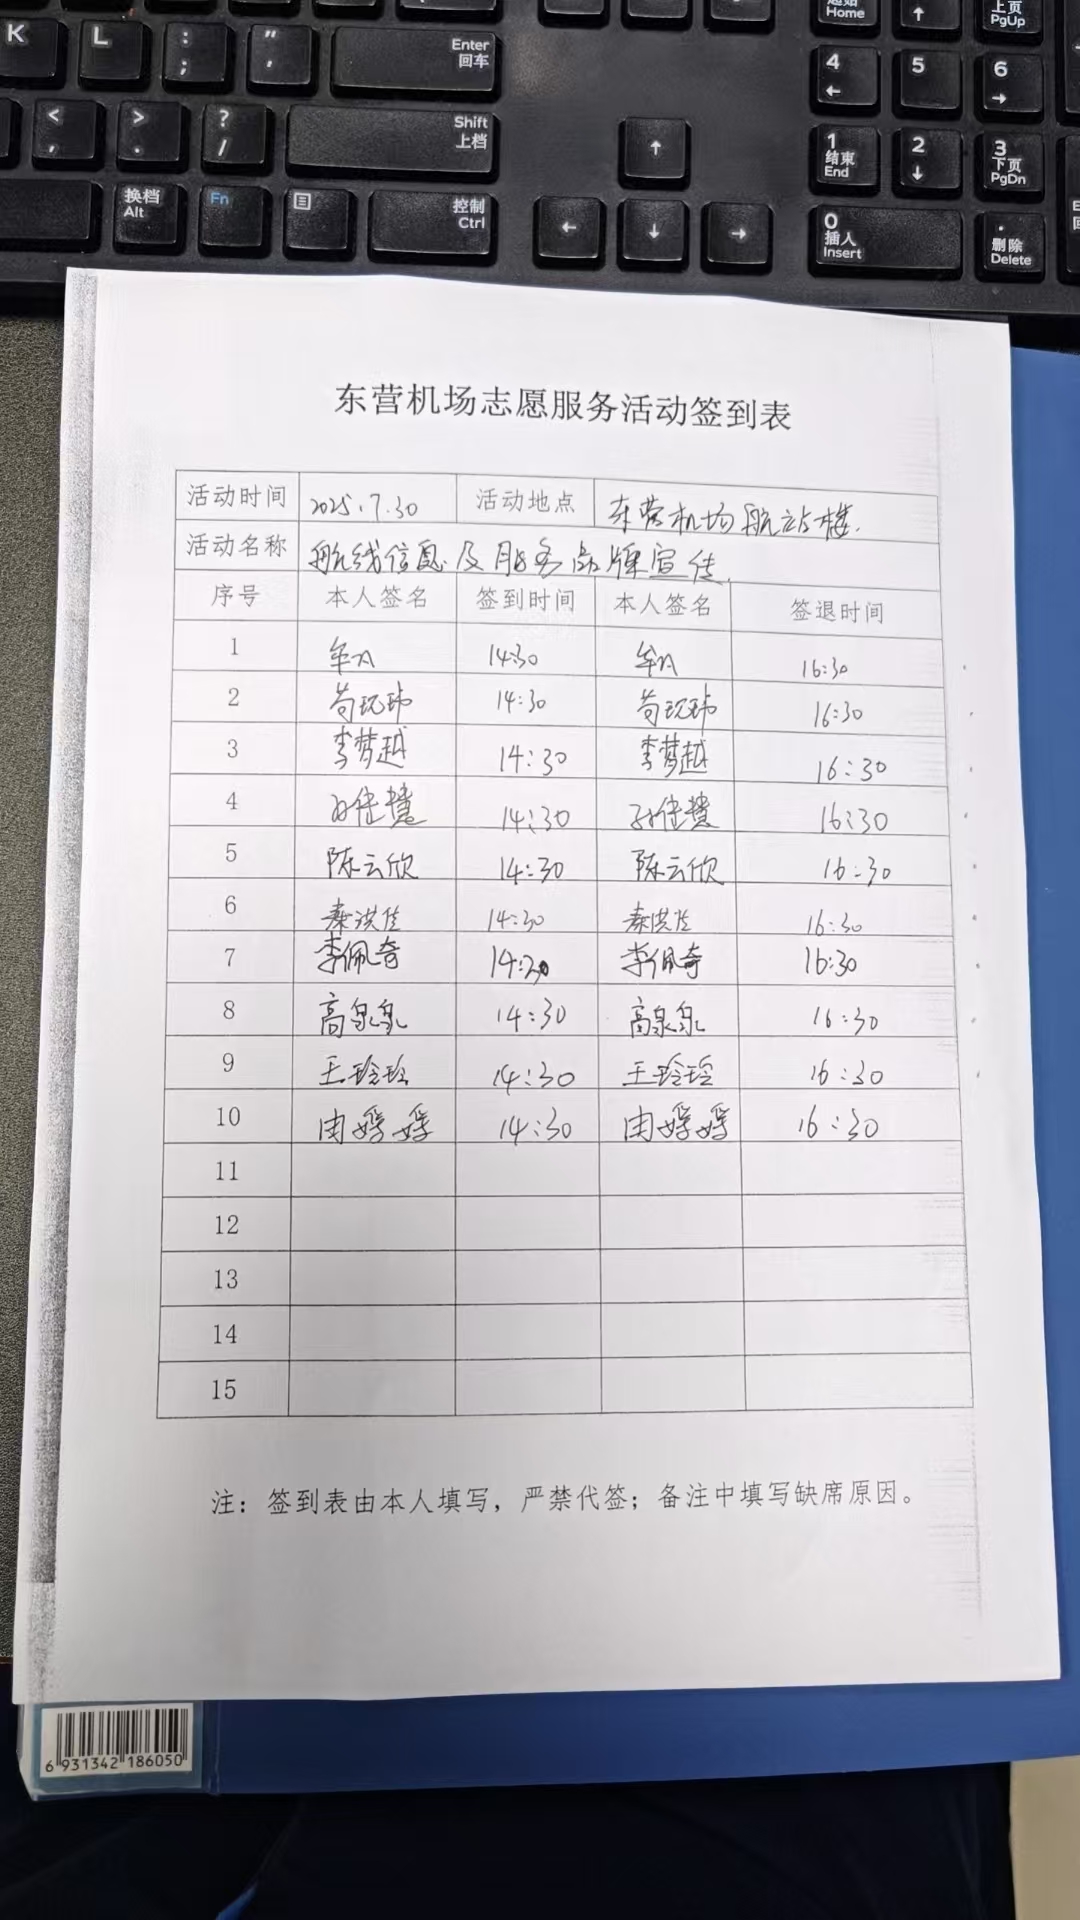 K L : ; " ' Enter 回车 起始 Home ↑ 上页 PgUp
< , > . ? / Shift 上档 ↑ 4 ← 5 6 →
换档 Alt Fn 控制 Ctrl ← ↓ → 1 结束 End 2 ↓ 3 下页 PgDn
0 插入 Insert . 删除 Delete
东营机场志愿服务活动签到表
活动时间 2025.7.30 活动地点 东营机场航站楼.
活动名称 航线信息及服务品牌宣传.
序号 本人签名 签到时间 本人签名 签退时间
1 14:30 16:30
2 14:30 16:30
3 李梦越 14:30 李梦越 16:30
4 孙佳慧 14:30 孙佳慧 16:30
5 陈云欣 14:30 陈云欣 16:30
6 秦洪佳 14:30 秦洪佳 16:30
7 李佩奇 14:30 李佩奇 16:30
8 高泉泉 14:30 高泉泉 16:30
9 王玲玲 14:30 王玲玲 16:30
10 由媛媛 14:30 由媛媛 16:30
11
12
13
14
15
注：签到表由本人填写，严禁代签；备注中填写缺席原因。
6 931342 186050